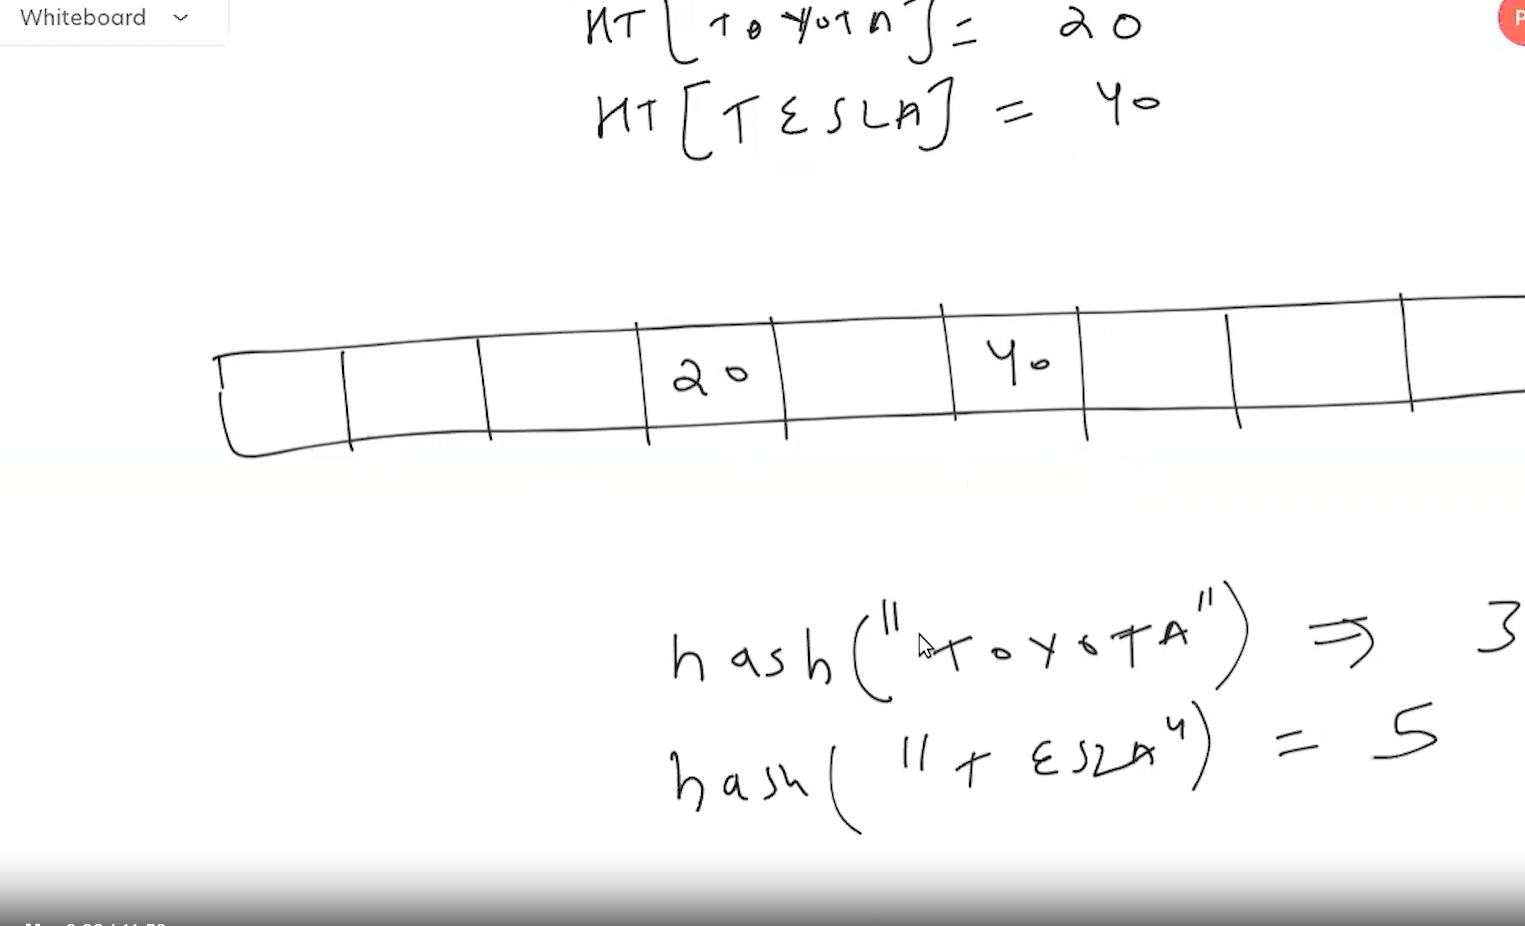 Whiteboard
P
HT[TOYOTA] = 20
HT[TESLA] = 40
20 40
hash("TOYOTA") ⇒ 3
hash("TESLA") = 5